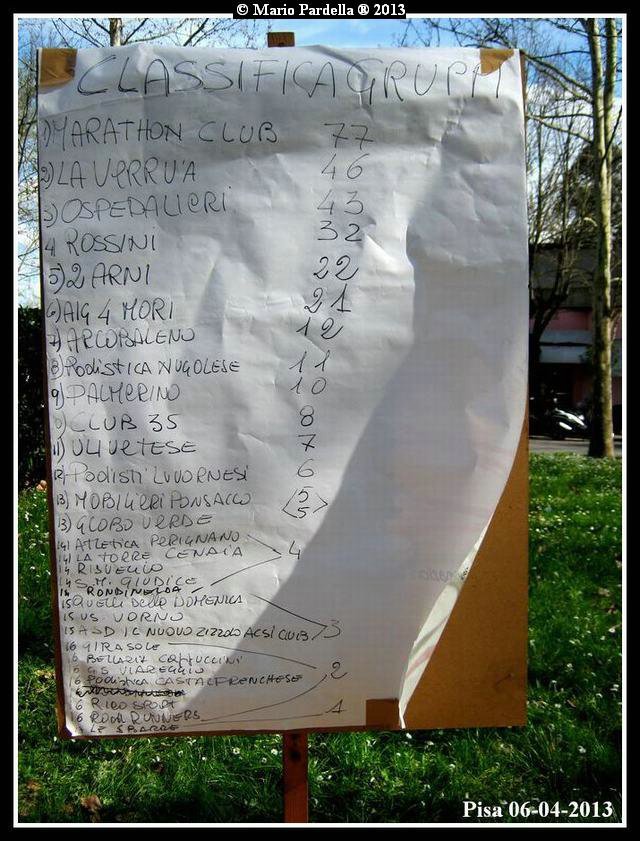 © Mario Pardella ® 2013
CLASSIFICA GRUPPI
1) MARATHON CLUB 77
2) LA VERRU'A 46
3) OSPEDALIERI 43
4 ROSSINI 32
5) 2 ARNI 22
6) AIG 4 MORI 21
7) ARCOBALENO 12
8) PODISTICA NUGOLESE 11
9) PALMERINO 10
CLUB 35 8
11) ULIVETESE 7
12- PODISTI LIVORNESI 6
13) MOBILIERI PONSACCO 5
13) GLOBO VERDE 5
14) ATLETICA PERIGNANO
14) LA TORRE CENAIA 4
14 RISVEGLIO
14 S.M. GIUDICE
14 RONDINELLA
15 QUELLI DELLA DOMENICA
15 US. VORNO
15 ASD IL NUOVO ZIZZOLO ACSI CLUB 3
16 GIRASOLE
16 BELLARIA CAPPUCCINI
16 G.S VIAREGGIO 2
16 PODISTICA CASTALFRENCHESE
16 RICO SPORT
16 ROAD RUNNERS 1
LE SBARRE
Pisa 06-04-2013